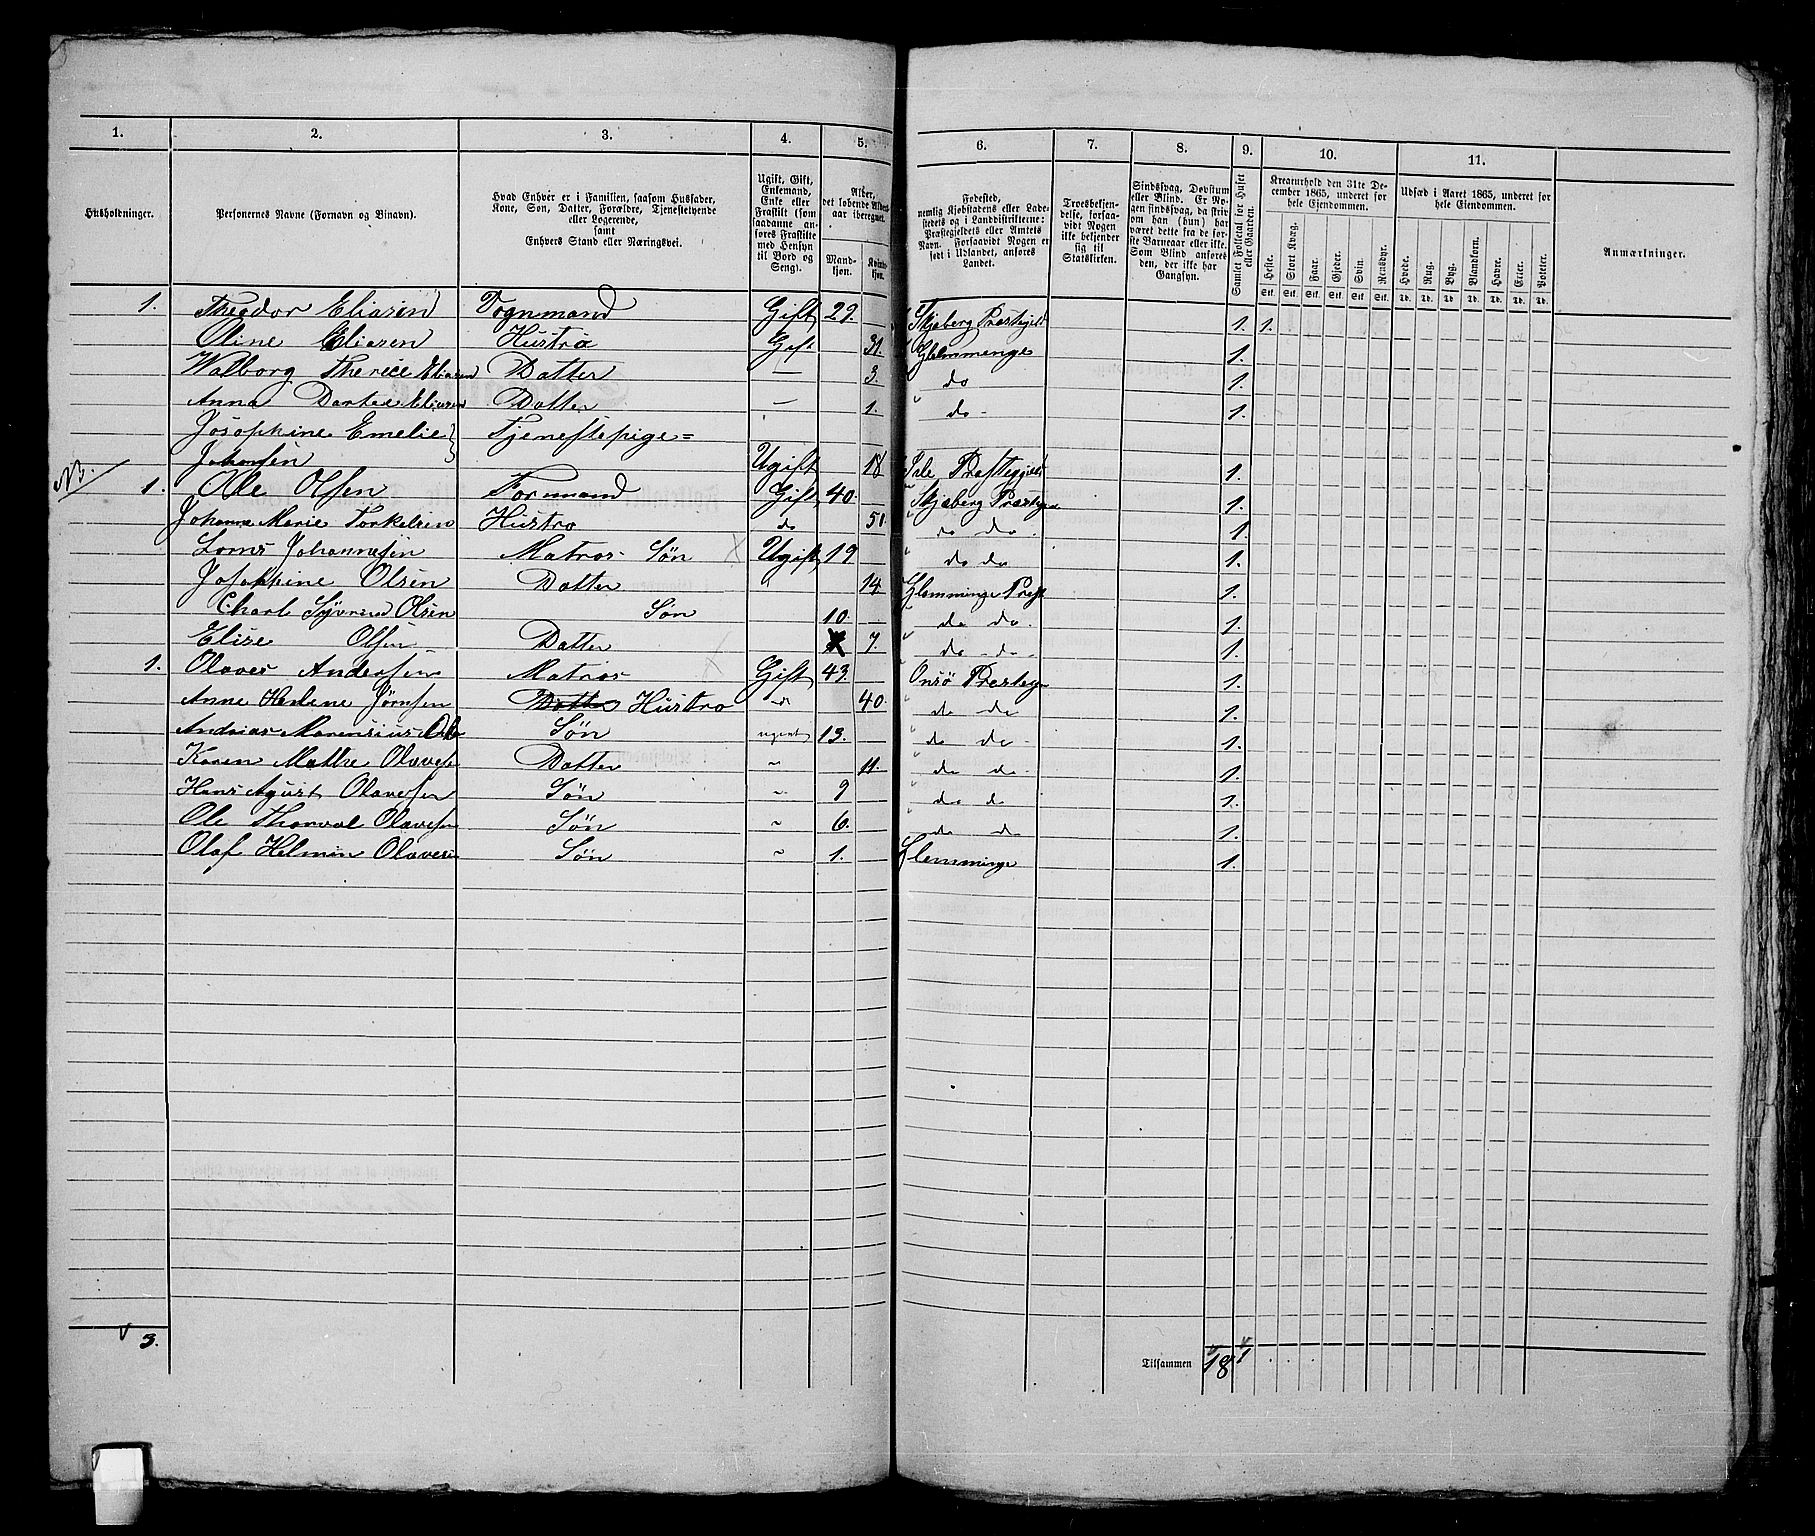 1. 2. 3. 4. 5. 6. 7. 8. 9. 10. 11.
Husholdninger.
Personernes Navne (Fornavn og Binavn).
Hvad Enhver er i Familien, saasom Husfader,
Kone, Søn, Datter, Forældre, Tjenestetyende
eller Logerende,
samt
Enhvers Stand eller Næringsvei.
Ugift, Gift,
Enkemand,
Enke eller
Fraskilt (som
saadanne an-
føres Fraskilte
med Hensyn
til Bord og
Seng).
Alder,
det løbende Alders-
aar iberegnet.
Mand-
kjøn.
Kvinde-
kjøn.
Fødested,
nemlig Kjøbstadens eller Lade-
stedets og i Landdistrikterne:
Præstegjeldets eller Amtets
Navn. Forsaavidt Nogen er
født i Udlandet, anføres
Landet.
Troesbekjen-
delse, forsaa-
vidt Nogen
ikke bekjender
sig til
Statskirken.
Sindssvag, Døvstum
eller Blind. Er No-
gen sindssvag, da skriv
om han (hun) har
været dette fra de før-
ste Barneaar eller ikke.
Som Blind anføres
den, der ikke har
Gangsyn.
Samlet Folketal for Huset
eller Gaarden.
Kreaturhold den 31te De-
cember 1865, underet for
hele Eiendommen.
Heste. Stort Kvæg. Faar. Gjeder. Svin. Rensdyr.
Stk. Stk. Stk. Stk. Stk. Stk.
Udsæd i Aaret 1865, underet for
hele Eiendommen.
Hvede. Rug. Byg. Blandkorn. Havre. Erter. Poteter.
Td. Td. Td. Td. Td. Td. Td.
Anmærkninger.
1. Theodor Eliasen Gift 29. Skjeberg Prestegjeld 1. 1.
Oline Eliasen Hustro Gift 31 Glemmenge 1.
Walborg Eliasen Datter — 3. " do 1.
Anna Dortea Eliasen Datter — 1. " do - 1.
Josephine Emelie } Tjenestepige =
Johansen Ugift 18 Prestegjeld 1.
NB. 1. Ole Olsen Formand Gift 40. Skjeberg Prestegje 1.
Johanne Marie Torkelsen Hustro do 51. " do do. 1.
Johannesen Matros Søn X Ugift 19 " do do 1.
Josephine Olsen Datter 14 Glemminge Prest 1.
Charl Olsen Søn 10. " do do. 1.
Elise Olsen Datter 7. " do - do - 1.
1. Olaves Andersen Matros X Gift 43. Onsø Prestegje 1.
Anne Helene Jørnsen Hustro do 40. " do do 1.
Andrias Søn ugivt 13. " do do - 1.
Karen Mathe Olavesen Datter ~ 11. " do do. 1.
Hans Agust Olavesen Søn ~ 9 " do d 1.
Ole Thorval Olavesen Søn ~ 6. " do d 1.
Olaf Helmin Olavesen Søn ~ 1. Glemminge 1.
3. Tilsammen 18 1